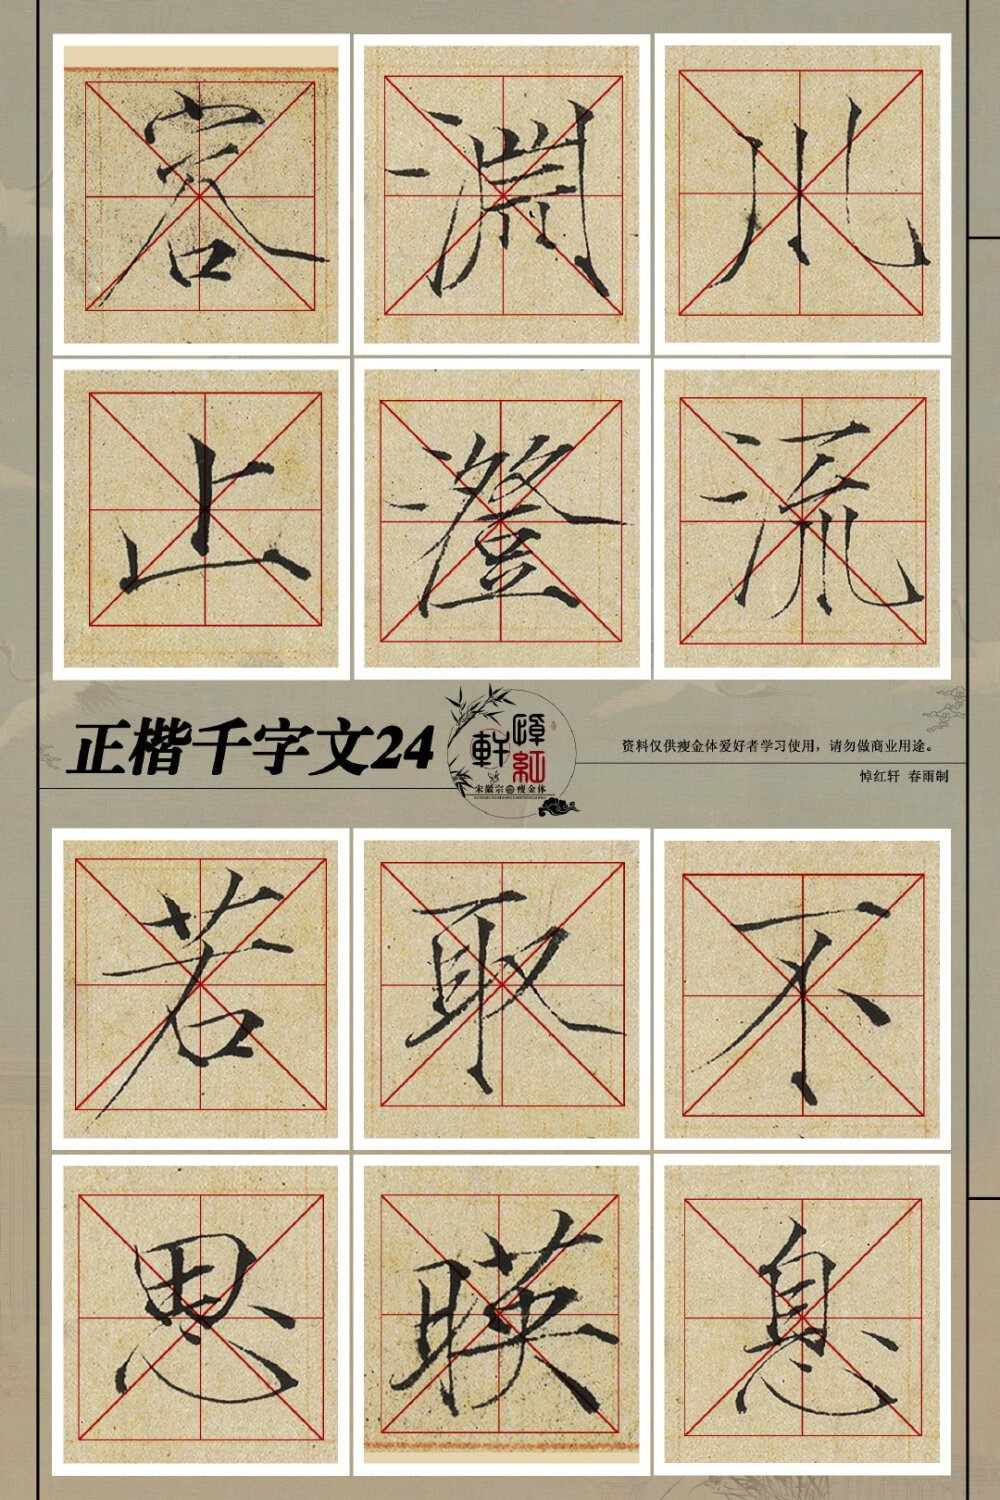 川流不息
淵澄取暎
容止若思
正楷千字文24
悼紅軒
宋徽宗瘦金体
资料仅供瘦金体爱好者学习使用，请勿做商业用途。
悼红轩 春雨制